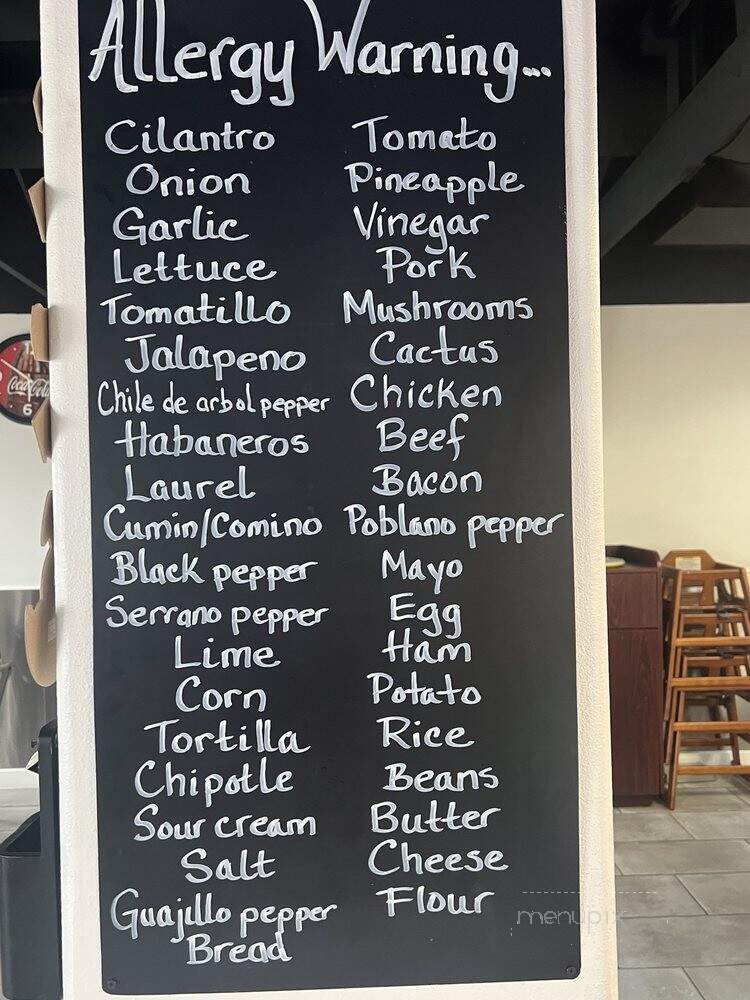 Allergy Warning...
Cilantro
Onion
Garlic
Lettuce
Tomatillo
Jalapeno
Chile de arbol pepper
Habaneros
Laurel
Cumin/Comino
Black pepper
Serrano pepper
Lime
Corn
Tortilla
Chipotle
Sour cream
Salt
Guajillo pepper
Bread
Tomato
Pineapple
Vinegar
Pork
Mushrooms
Cactus
Chicken
Beef
Bacon
Poblano pepper
Mayo
Egg
Ham
Potato
Rice
Beans
Butter
Cheese
Flour
Coca-Cola
6
menupix